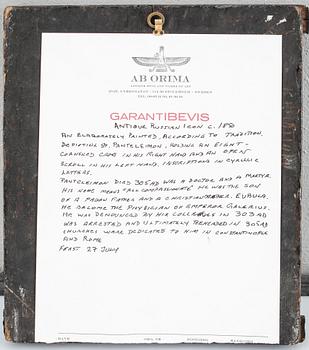 AB ORIMA
GARANTIBEVIS
ANTIQUE RUSSIAN ICON C. 1850
AN ELABORATELY PAINTED, ACCORDING TO TRADITION,
DEPICTING ST. PANTELEIMON, HOLDING AN EIGHT-
CORNERED CROSS IN HIS RIGHT HAND AND AN OPEN
SCROLL IN HIS LEFT HAND, INSCRIPTIONS IN CYRILLIC
LETTERS.
PANTELEIMON DIED 305 AD WAS A DOCTOR AND A MARTYR
HIS NAME MEANS "ALL COMPASSIONATE" HE WAS THE SON
OF A PAGAN FATHER AND A CHRISTIAN MOTHER. EUBULA.
HE BECAME THE PHYSICIAN OF EMPEROR GALERIUS.
HE WAS DENOUNCED BY HIS COLLEAGUES IN 303 AD
WAS ARRESTED AND ULTIMATELY BEHEADED IN 305 AD
CHURCHES WERE DEDICATED TO HIM IN CONSTANTINOPLE
AND ROME
FEAST. 27 JULY